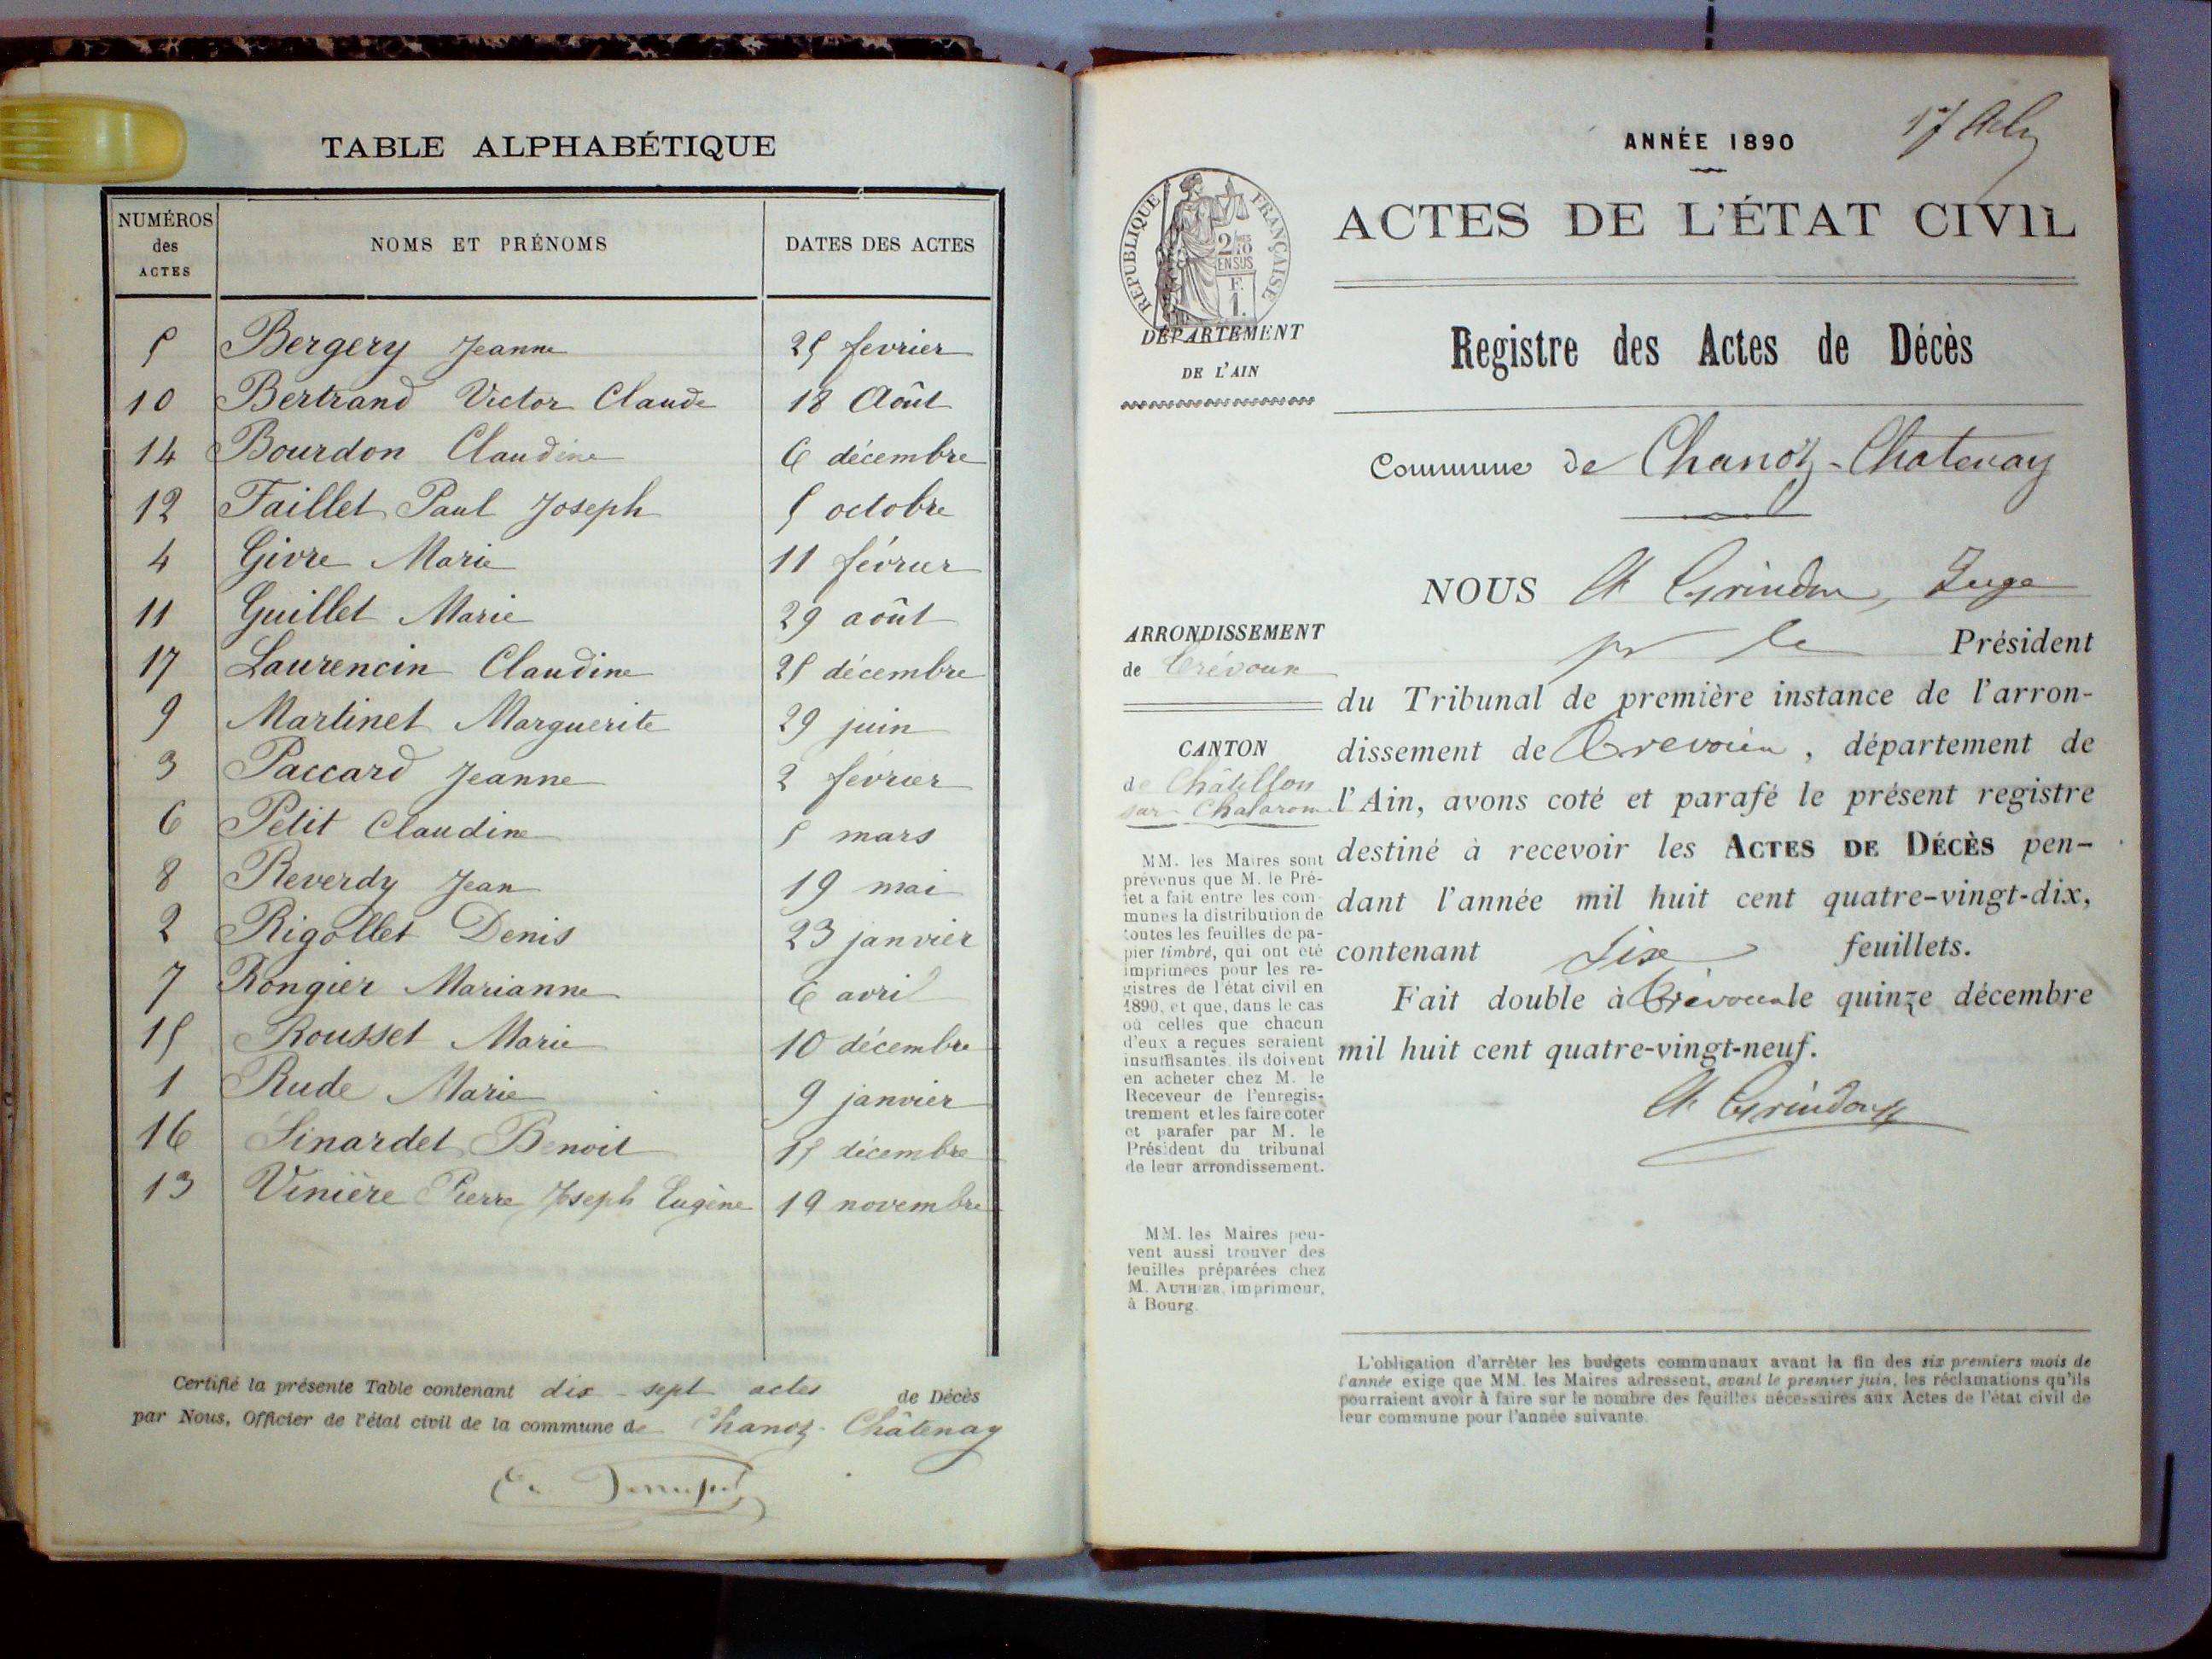 TABLE ALPHABÉTIQUE
NUMÉROS des ACTES NOMS ET PRÉNOMS DATES DES ACTES
5 Bergery Jeanne 25 fevrier
10 Bertrand Victor Claude 18 Août
14 Bourdon Claudine 6 décembre
12 Faillet Paul Joseph 5 octobre
4 Givre Marie 11 février
11 Guillet Marie 29 août
17 Laurencin Claudine 25 décembre
9 Martinet Marguerite 29 juin
3 Paccard Jeanne 2 fevrier
6 Petit Claudine 5 mars
8 Reverdy Jean 19 mai
2 Rigollet Denis 23 janvier
7 Rongier Marianne 6 avril
15 Rousset Marie 10 décembre
1 Rude Marie 9 janvier
16 Sinardet Benoit 15 décembre
13 Vinière Pierre Joseph Eugène 19 novembre
Certifié la présente Table contenant dix-sept actes de Décès
par Nous, Officier de l'état civil de la commune de Chanoz-Châtenay
17 
ANNÉE 1890
RÉPUBLIQUE FRANÇAISE
2/10 EN SUS
F. 1.
ACTES DE L'ÉTAT CIVIL
DÉPARTEMENT
DE L'AIN
Registre des Actes de Décès
Commune de Chanoz-Chatenay
NOUS Grindon, Juge
pr le Président
ARRONDISSEMENT
de Trévoux
du Tribunal de première instance de l'arron-
dissement de Trevoux, département de
l'Ain, avons coté et parafé le présent registre
destiné à recevoir les ACTES DE DÉCÈS pen-
dant l'année mil huit cent quatre-vingt-dix,
contenant Six feuillets.
Fait double à Trévoux le quinze décembre
mil huit cent quatre-vingt-neuf.
Grindon
CANTON
de Châtillon
sur Chalaronne
MM. les Maires sont
prévenus que M. le Pré-
fet a fait entre les com-
munes la distribution de
toutes les feuilles de pa-
pier timbré, qui ont été
imprimées pour les re-
gistres de l'état civil en
1890, et que, dans le cas
où celles que chacun
d'eux a reçues seraient
insuffisantes, ils doivent
en acheter chez M. le
Receveur de l'enregis-
trement et les faire coter
et parafer par M. le
Président du tribunal
de leur arrondissement.
MM. les Maires peu-
vent aussi trouver des
feuilles préparées chez
M. AUTHIER, imprimeur,
à Bourg.
L'obligation d'arrêter les budgets communaux avant la fin des six premiers mois de
l'année exige que MM. les Maires adressent, avant le premier juin, les réclamations qu'ils
pourraient avoir à faire sur le nombre des feuilles nécessaires aux Actes de l'état civil de
leur commune pour l'année suivante.